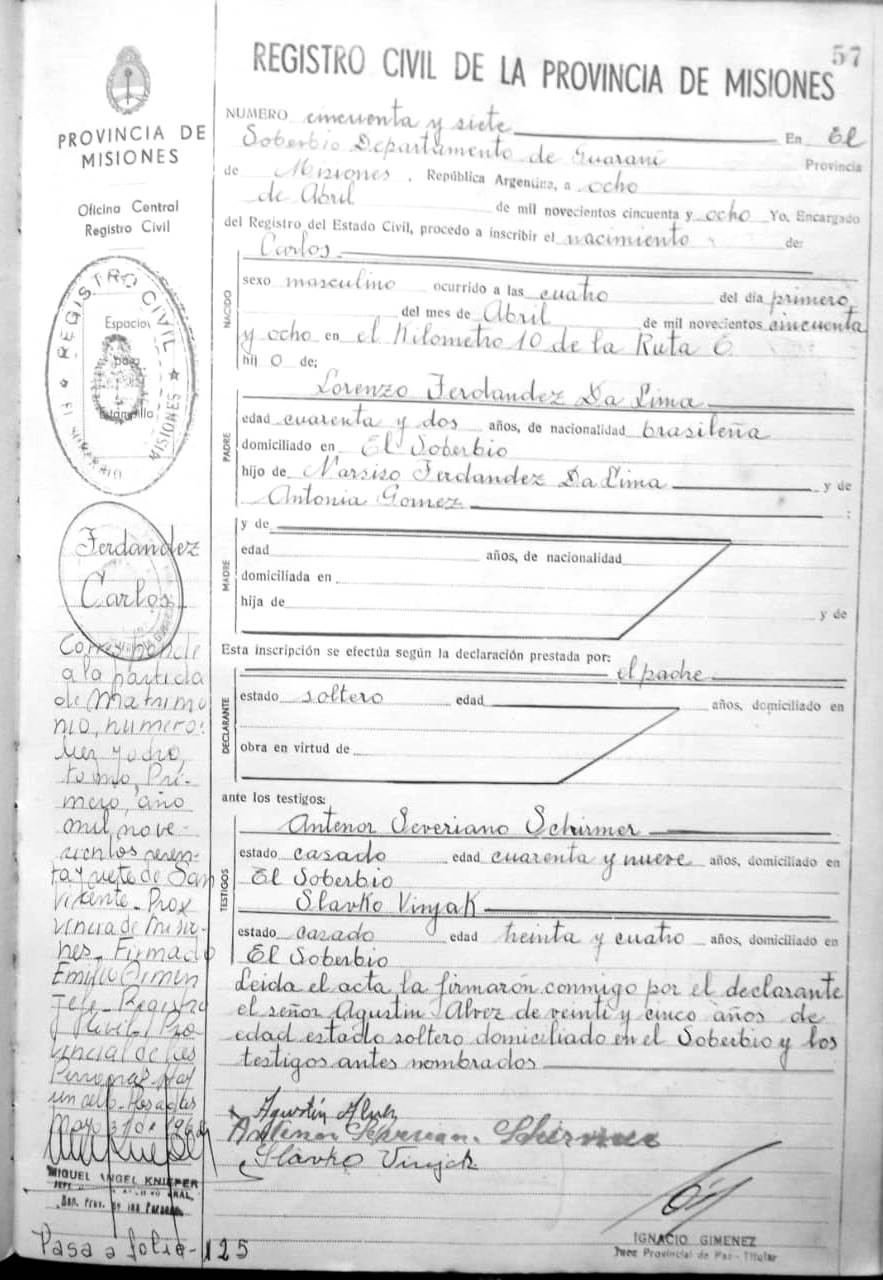 57
REGISTRO CIVIL DE LA PROVINCIA DE MISIONES
PROVINCIA DE
MISIONES
Oficina Central
Registro Civil
REGISTRO CIVIL
Espacio
para
Estampilla
MISIONES
NUMERO cincuenta y siete En El
Soberbio Departamento de Guaraní Provincia
de Misiones, República Argentina, a ocho
de Abril de mil novecientos cincuenta y ocho Yo, Encargado
del Registro del Estado Civil, procedo a inscribir el nacimiento de:
Carlos
NACIDO
sexo masculino ocurrido a las cuatro del día primero
del mes de Abril de mil novecientos cincuenta
y ocho en el Kilometro 10 de la Ruta 6
hij o de;
Lorenzo Ferdandez Da Lima
PADRE
edad cuarenta y dos años, de nacionalidad brasileña
domiciliado en El Soberbio
hijo de Marsiso Ferdandez Da Lima y de
Antonia Gomez ;
MADRE
y de
edad años, de nacionalidad
domiciliada en
hija de y de
Esta inscripción se efectúa según la declaración prestada por:
el padre
DECLARANTE
estado soltero edad años, domiciliado en
obra en virtud de
ante los testigos:
TESTIGOS
Antenor Severiano Schirmer
estado casado edad cuarenta y nueve años, domiciliado en
El Soberbio
Slavko Vinjak
estado casado edad treinta y cuatro años, domiciliado en
El Soberbio
Leida el acta la firmarón conmigo por el declarante
el señor Agustin Alvez de veinti y cinco años de
edad estado soltero domiciliado en el Soberbio y los
testigos antes nombrados
Ferdandez
Carlos
Corresponde
a la partida
de Matrimo
nio, numero:
tomo, Pri-
mero, año
mil, nove-
cientos
de San
Vicente- Prov
vincia de Misio-
nes- Firmado
Emilio
Jefe- Registro
Civil Pro
vincial de las
Personas Hay
un sello- Posadas
Mayo
MIGUEL ANGEL KNIEPER
Pasa a folio-125
Agustín Alvez
Antenor Schirmer
Slavko Vinjak
IGNACIO GIMENEZ
Juez Provincial de Paz - Titular